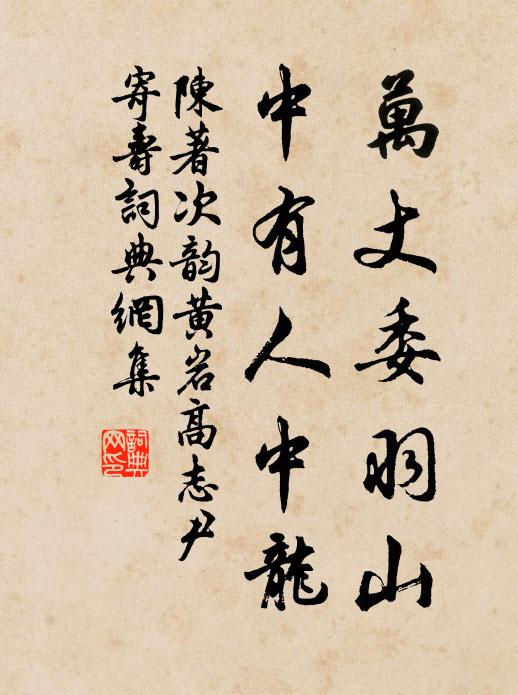 萬丈委羽山
中有人中龍
陳著次韵黄岩高志尹
寄壽詞典網集
詞典
网印